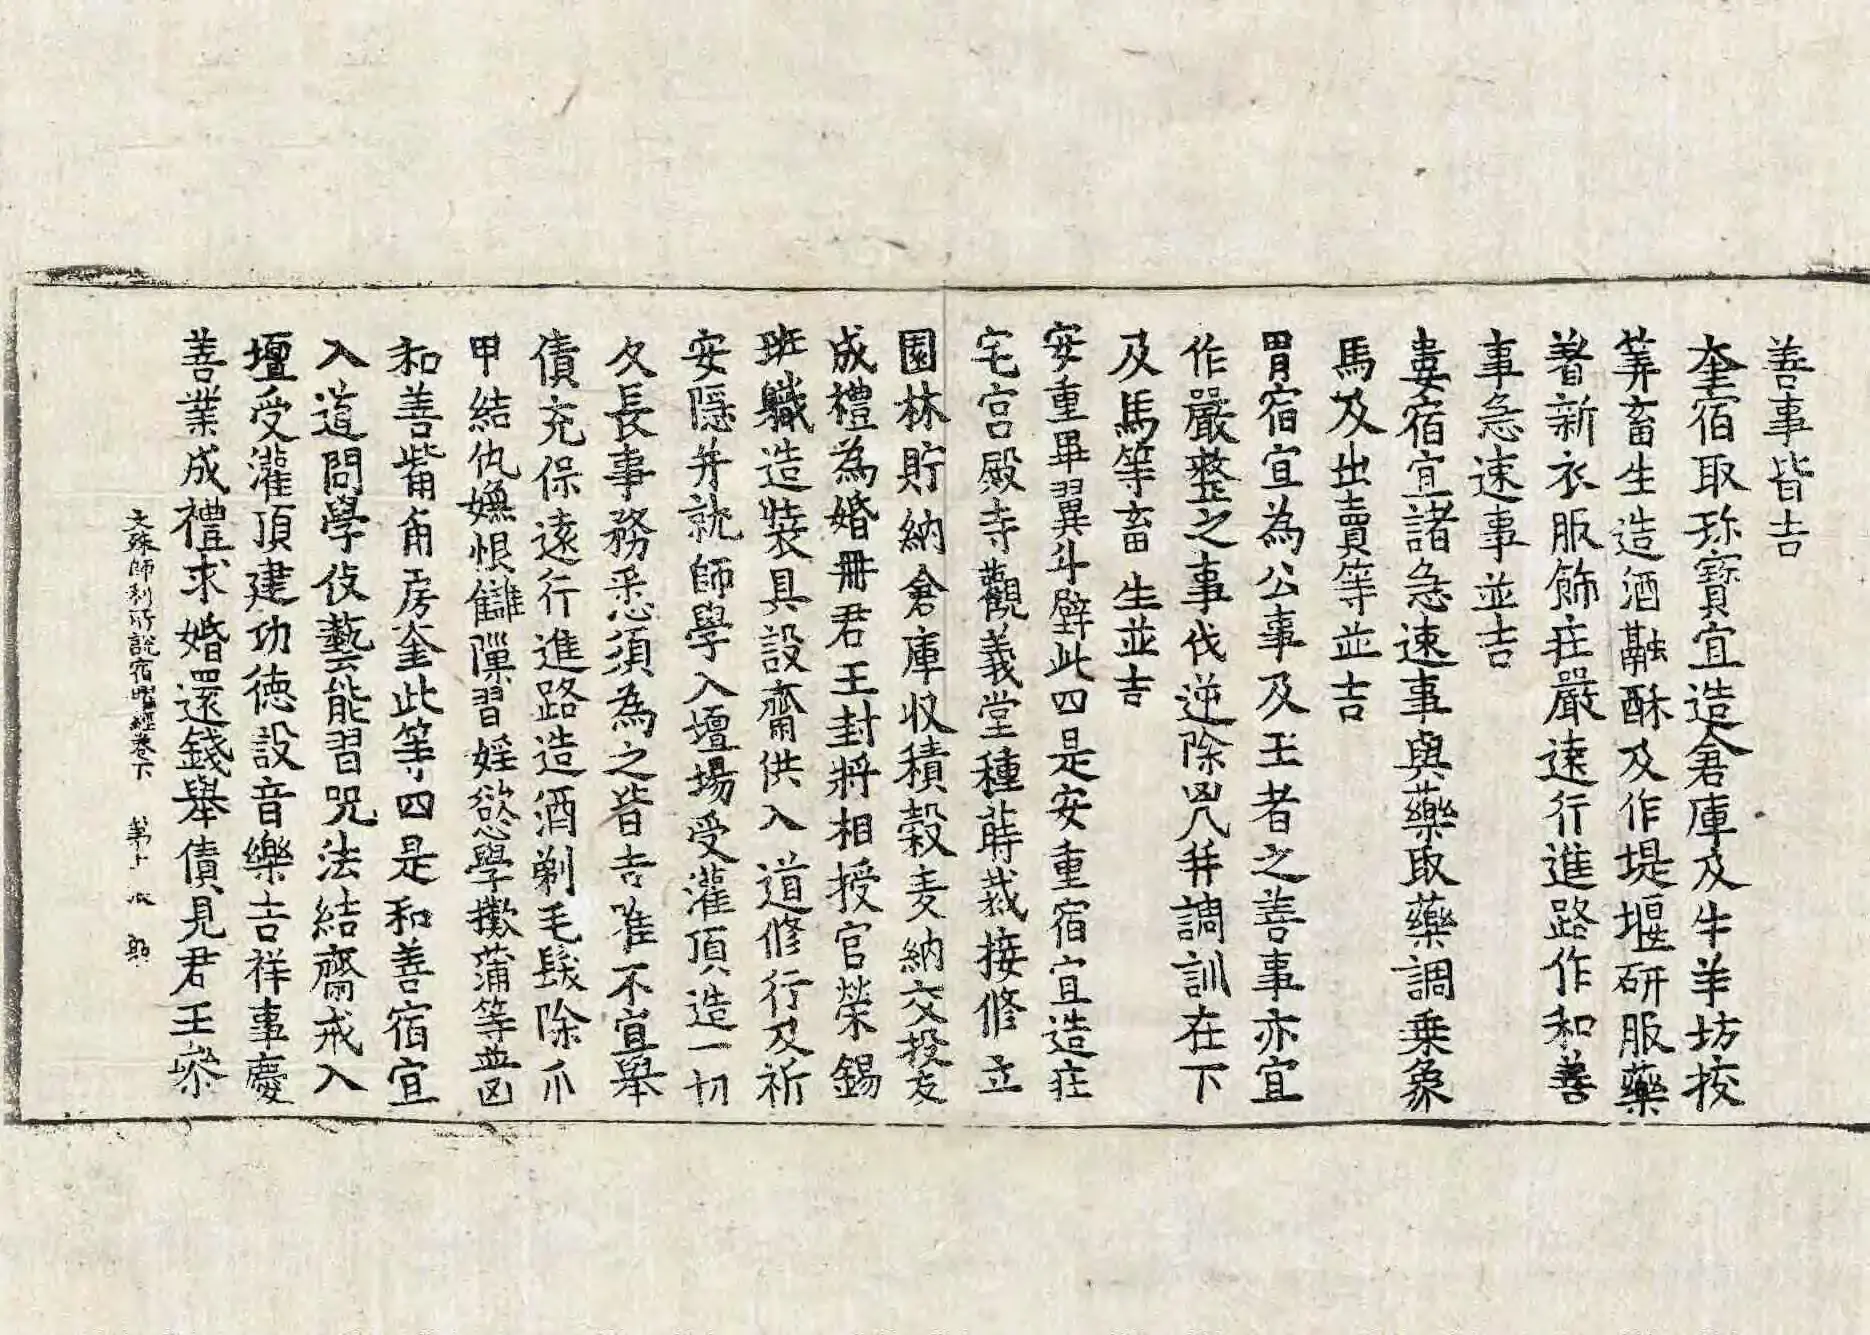 善事皆吉
奎宿取珎寶宜造倉庫及牛羊坊挍
筭畜生造酒融酥及作堤堰研服藥
著新衣服飾庄嚴遠行進路作和善
事急速事並吉
婁宿宜諸急速事與藥取藥調乗象
馬及出賣等並吉
胃宿宜為公事及王者之善事亦宜
作嚴整之事伐逆除㓙并調訓在下
及馬等畜生並吉
安重畢翼斗壁此四是安重宿宜造庄
宅宮殿寺觀義堂種蒔栽接修立
園林貯納倉庫収積穀麦納交投友
成禮為婚冊君王封將相授官榮錫
班職造裝具設齋供入道修行及祈
安隱并就師學入壇場受灌頂造一切
久長事務悉須為之皆吉唯不宜舉
債充保遠行進路造酒剃毛髮除爪
甲結仇嫌恨讎隟習婬慾學摴蒲等並凶
和善觜角房奎此等四是和善宿宜
入道問學伎藝能習咒法結齋戒入
壇受灌頂建功徳設音樂吉祥事慶
善業成禮求婚還錢舉債見君王叅
文殊師利所説宿曜經卷下 第十